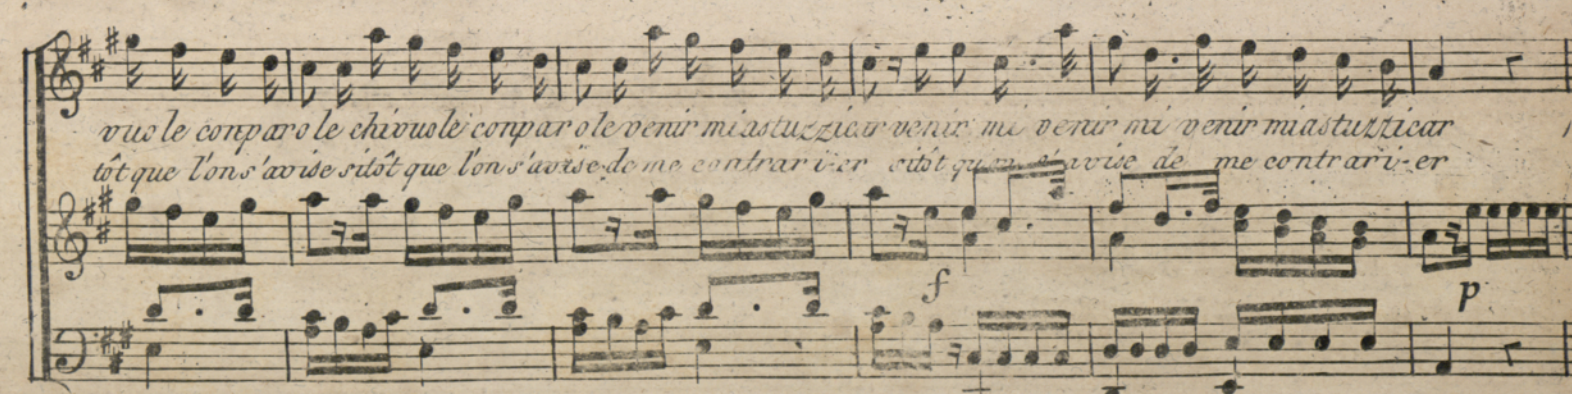 vuole conparole chivuole conparole venir miastuzzicar venir mi venir mi venir miastuzzicar
tôt que l'on s'avise sitôt que l'on s'avise de me contrari-er sitôt s'avise de me contrari-er
f
p